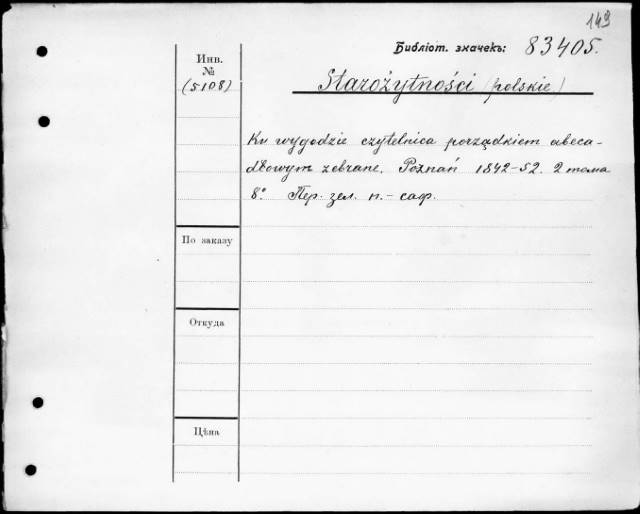 143
Библіот. значекъ: 83405.
Инв.
№
(5108)
Starożytności (polskie)
Ku wygodzie czytelnica porządkiem abeca-
dłowym zebrane. Poznań 1842-52. 2 тома
8°. Пер. зел. п.- саф.
По заказу
Откуда
Цѣна